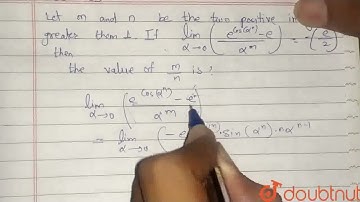 Let m and n be the two positive in
greater them 1 If lim α→0 (e^cos(αⁿ) - e / α^m) = -(e/2)
then
the value of m/n is :
lim α→0 (e^cos(αⁿ) - e / α^m)
= lim α→0 (-e · sin(αⁿ) · nα^n-1
doubtnut